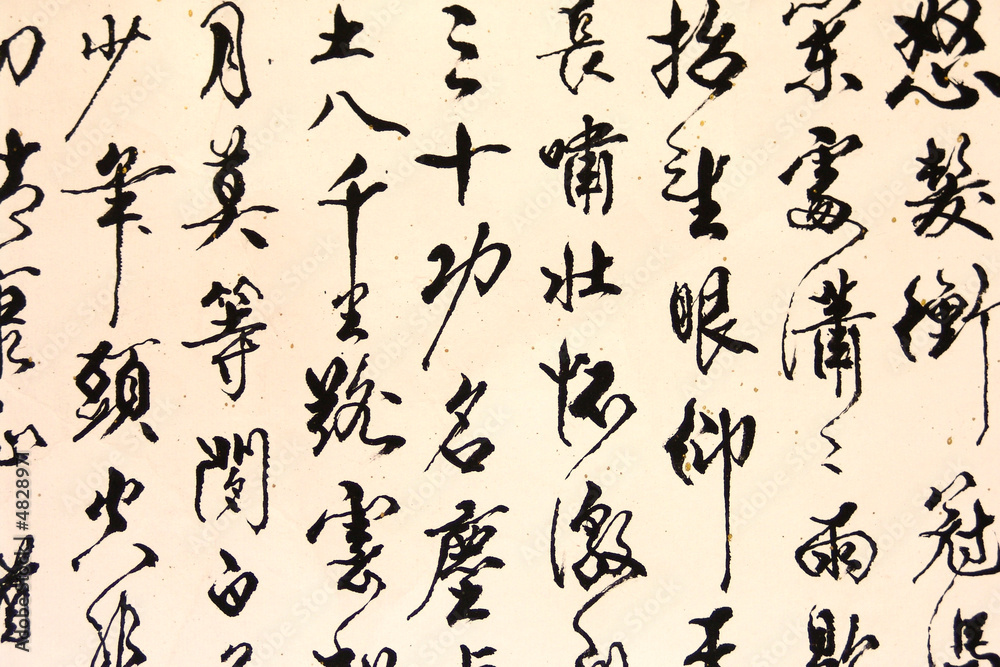 怒髮衝冠
處瀟〻雨
抬望眼仰
長嘯壯懷激
三十功名塵
土八千里路雲和
月莫等閒白
少年頭空悲
切靖康
Adobe Stock | #4828971